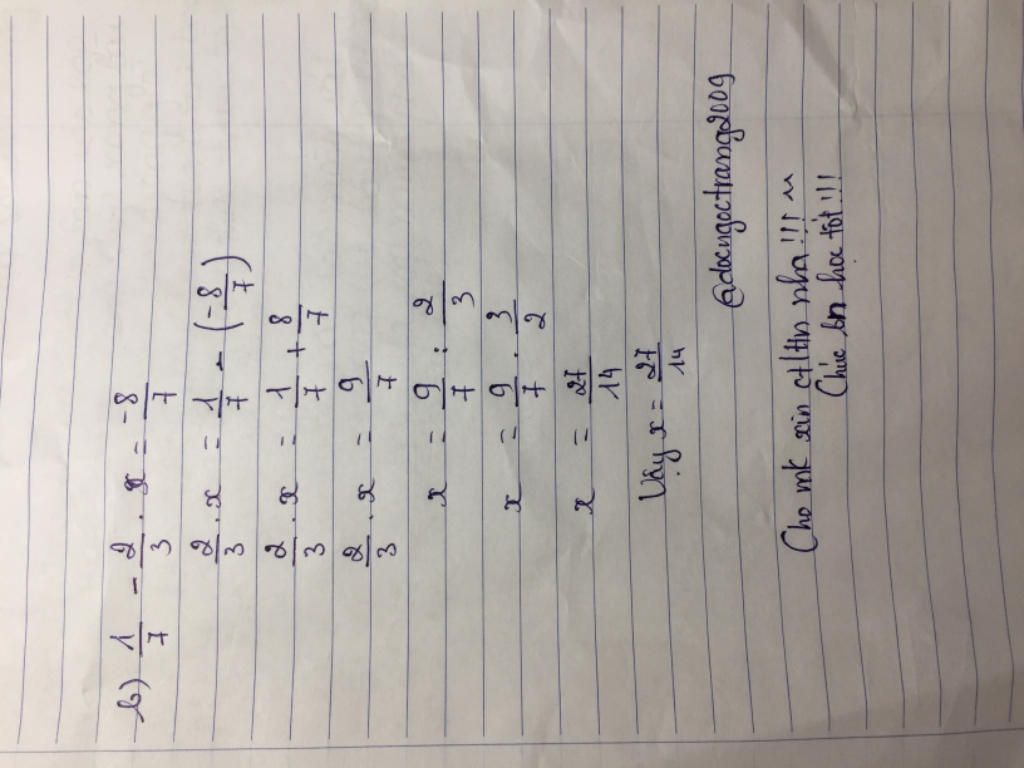 b) 1/7 - 2/3 . x = -8/7
2/3 . x = 1/7 - (-8/7)
2/3 . x = 1/7 + 8/7
2/3 . x = 9/7
x = 9/7 : 2/3
x = 9/7 . 3/2
x = 27/14
Vậy x = 27/14
@doanngoctrang2009
Cho mk xin ctlhn nha!!! ~
Chúc bn học tốt!!!